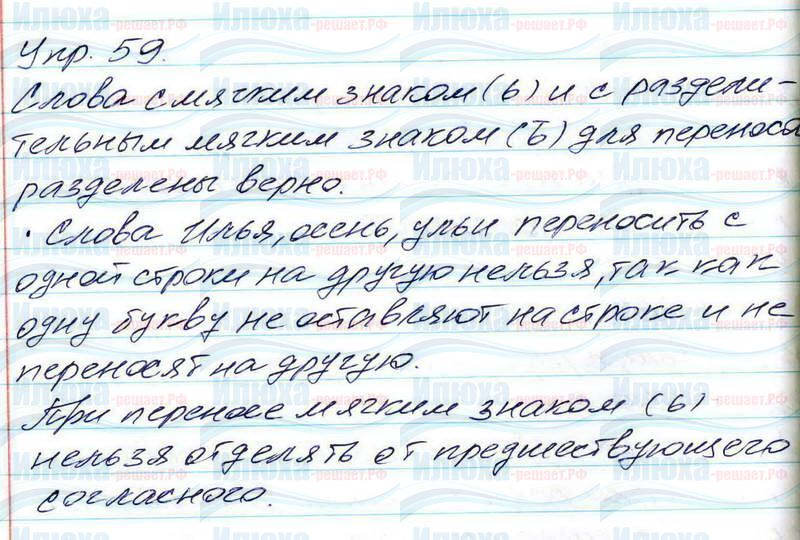 Упр. 59.
Слова с мягким знаком (ь) и с раздели-
тельным мягким знаком (ь) для переноса
разделены верно.
· Слова Илья, осень, ульи переносить с
одной строки на другую нельзя, так как
одну букву не оставляют на строке и не
переносят на другую.
При переносе мягким знаком (ь)
нельзя отделять от предшествующего
согласного.